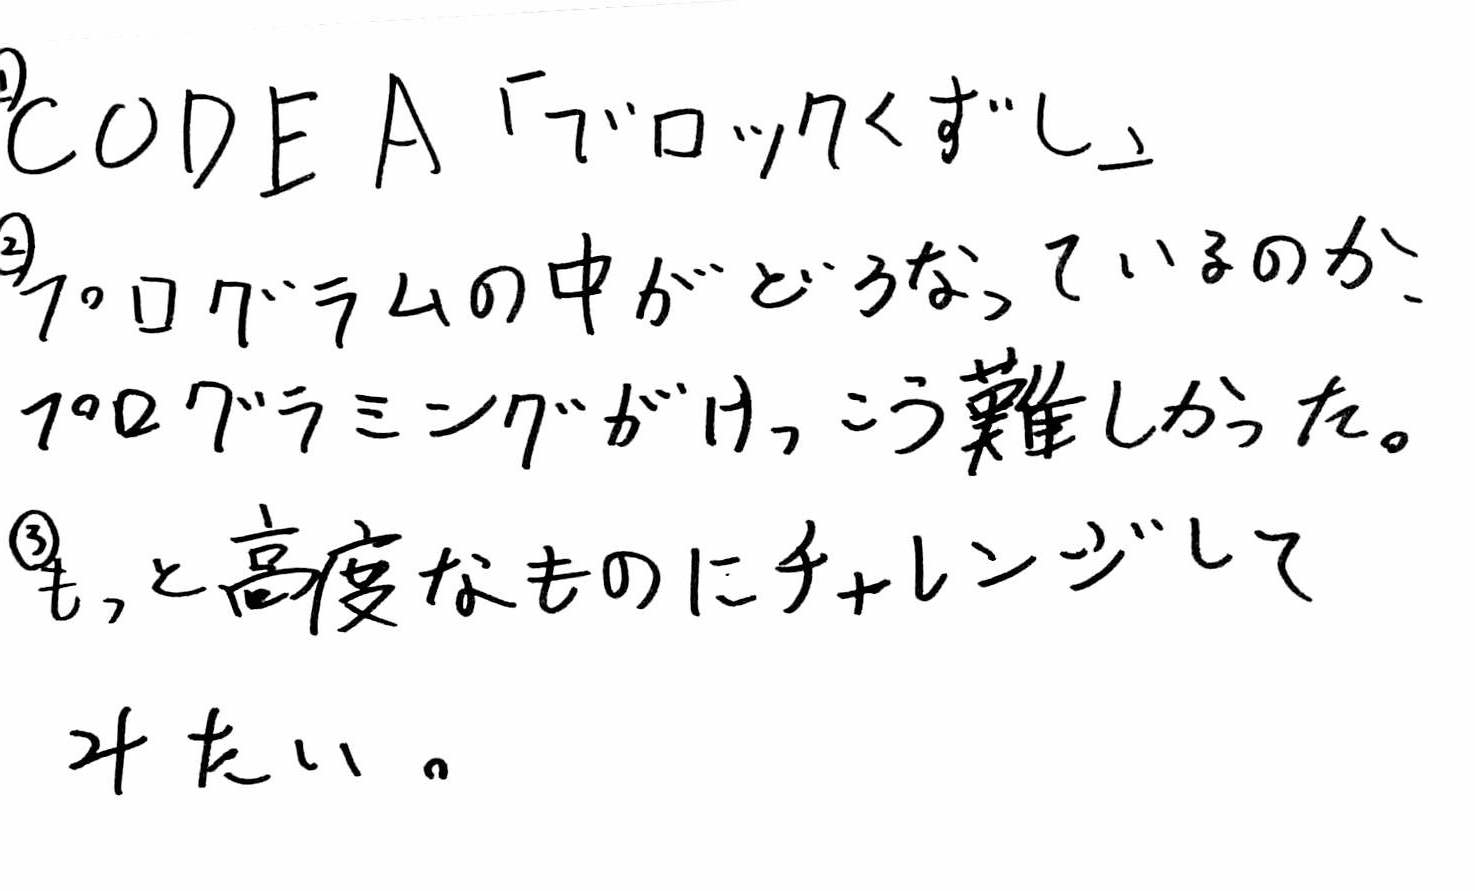 ①CODE A「ブロックくずし」
②プログラムの中がどうなっているのか、
プログラミングがけっこう難しかった。
③もっと高度なものにチャレンジして
みたい。